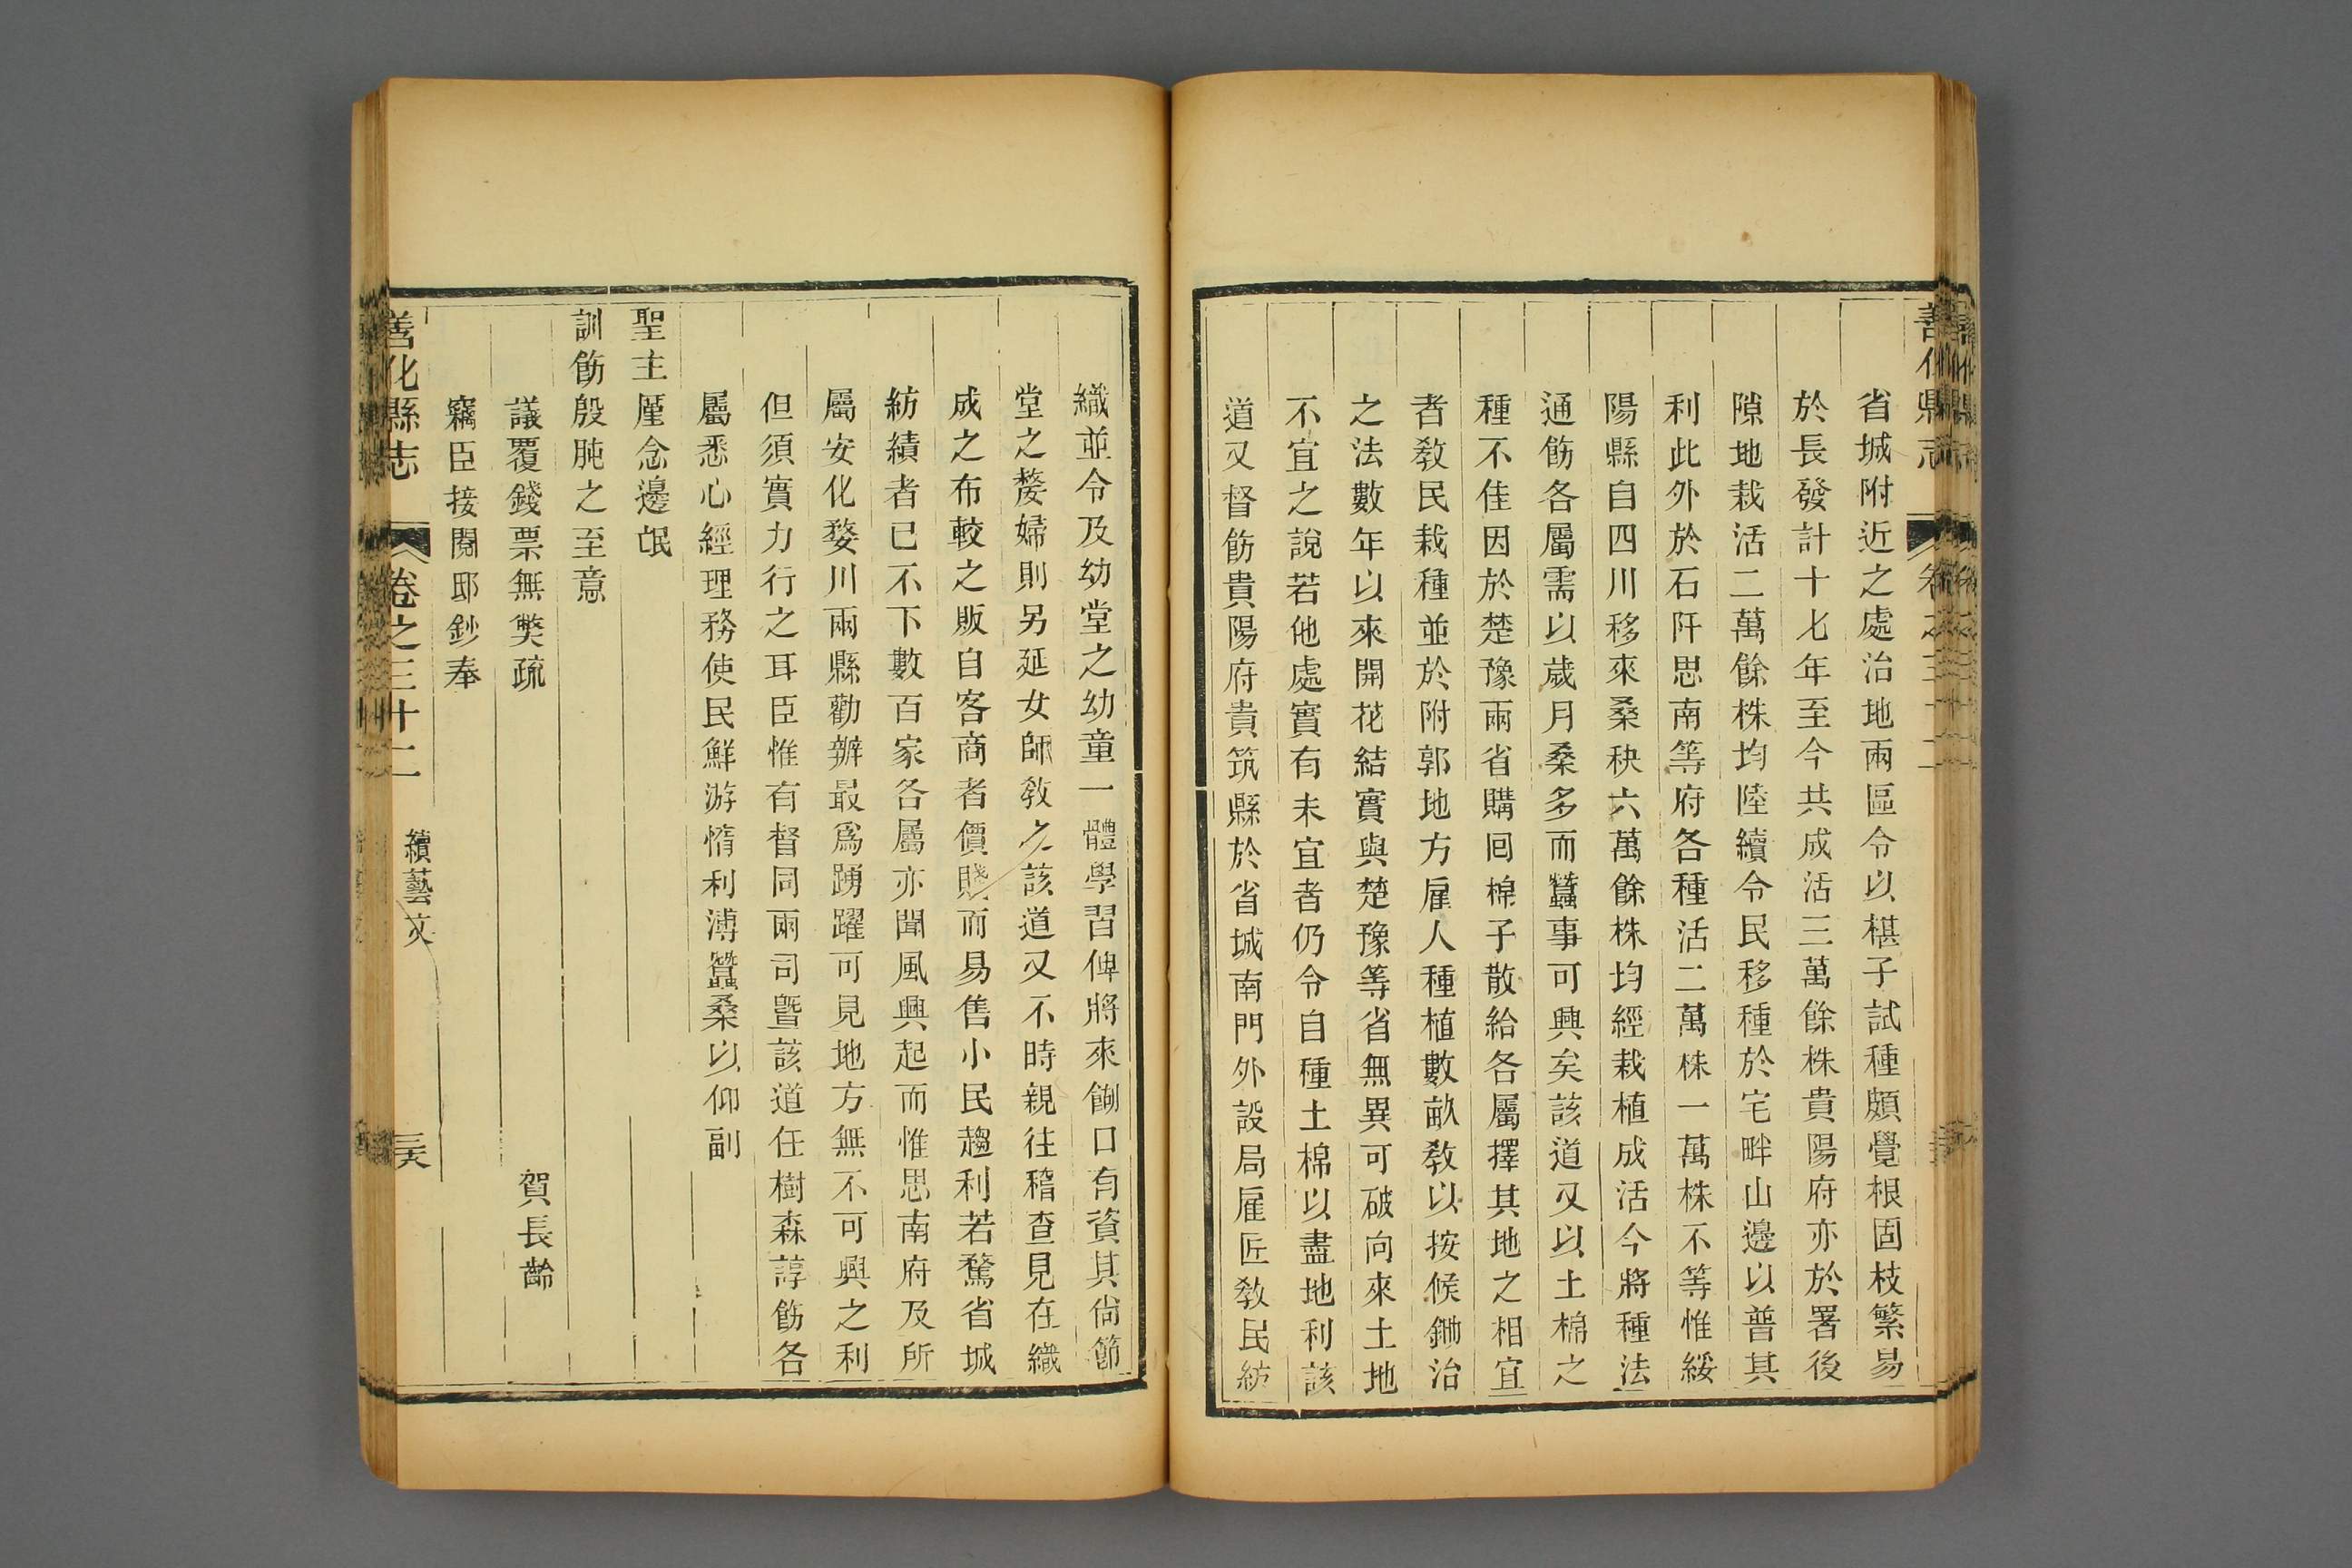 善化縣志
省城附近之處治地兩區令以椹子試種頗覺根固枝繁易
於長發計十七年至今共成活三萬餘株貴陽府亦於署後
隙地栽活二萬餘株均陸續令民移種於宅畔山邊以普其
利此外於石阡思南等府各種活二萬株一萬株不等惟綏
陽縣自四川移來桑秧六萬餘株均經栽植成活今將種法
通飭各屬需以歲月桑多而蠶事可興矣該道又以土棉之
種不佳因於楚豫兩省購回棉子散給各屬擇其地之相宜
者敎民栽種並於附郭地方雇人種植數畝敎以按候鋤治
之法數年以來開花結實與楚豫等省無異可破向來土地
不宜之說若他處實有未宜者仍令自種土棉以盡地利該
道又督飭貴陽府貴筑縣於省城南門外設局雇匠敎民紡
織並令及幼堂之幼童一體學習俾將來餬口有資其尙節
堂之嫠婦則另延女師敎之該道又不時親往稽查見在織
成之布較之販自客商者價賤而易售小民趨利若騖省城
紡績者已不下數百家各屬亦聞風興起而惟思南府及所
屬安化婺川兩縣勸辦最爲踴躍可見地方無不可興之利
但須實力行之耳臣惟有督同兩司曁該道任樹森諄飭各
屬悉心經理務使民鮮游惰利溥蠶桑以仰副
聖主厪念邊氓
訓飭殷肫之至意
議覆錢票無獘疏 賀長齡
竊臣接閱邸鈔奉
善化縣志 卷之三十二 續藝文 三六